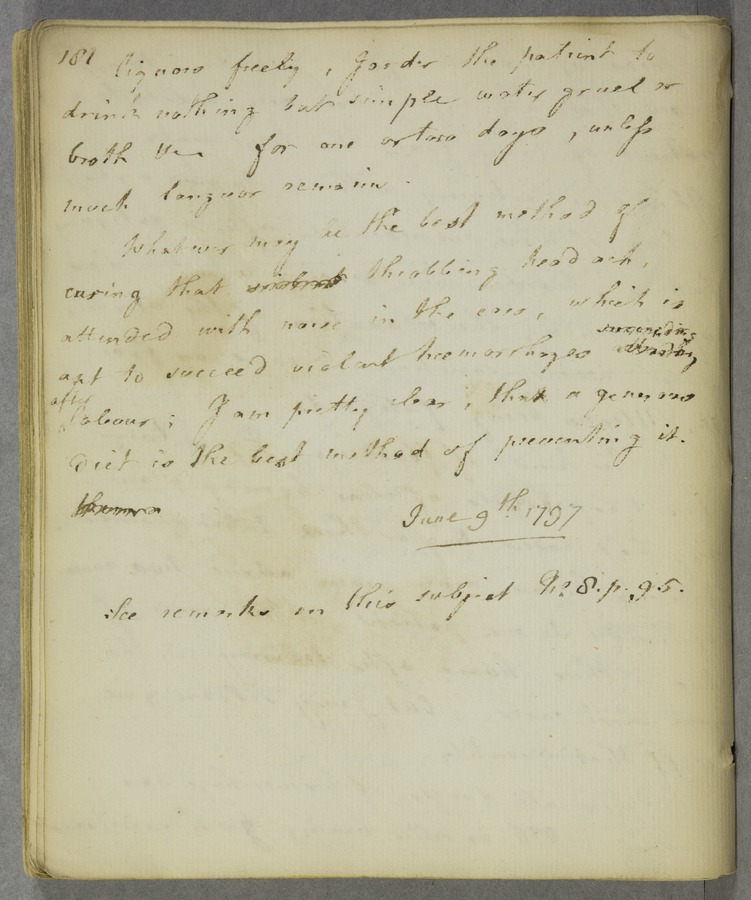 181 liquors freely, I order the patient to
drink nothing but simple water gruel or
broth &c for one or two days, unless
much languor remain.
Whatever may be the best method of
curing that violent throbbing head ach,
attended with noise in the ears, which is
apt to succeed violent hœmorrhages succeeding
after labour; I am pretty clear, that a generous
diet is the best method of preventing it.
June 9th 1797
See remarks on this subject No 8. p. 95.